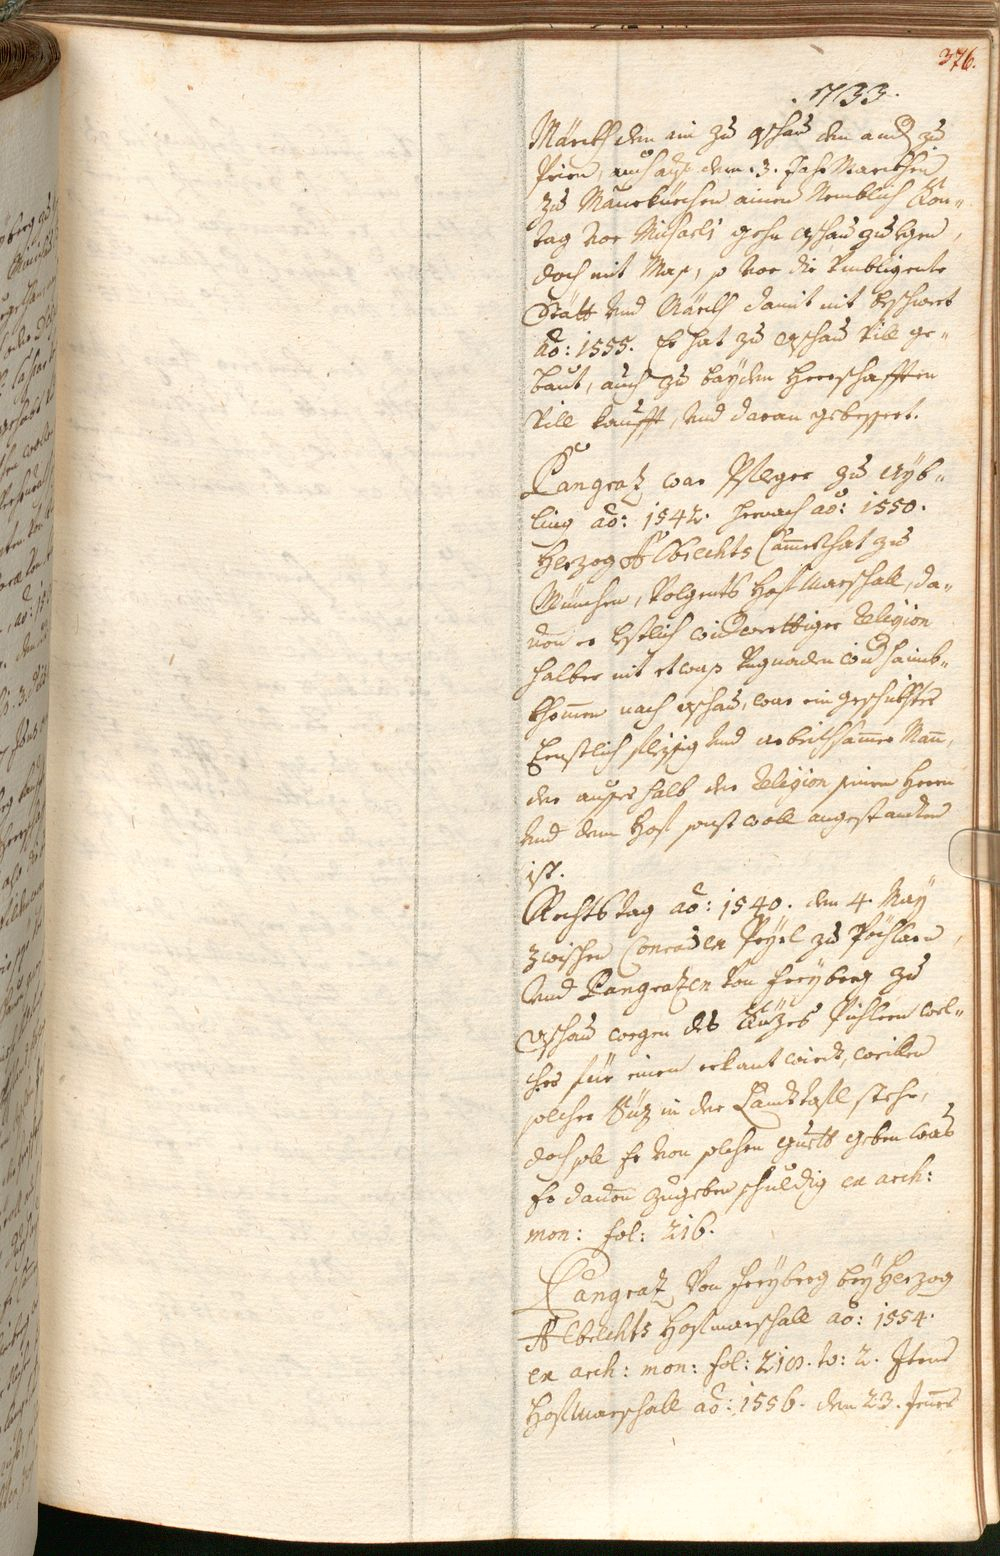 376.
.733.
Märckh den ein zu Aschau den and. zu
Prien, auch auß dem .3. Jahr Märckhten
zu Maurkürchen ainen Nemblich Son„
tag vor Michaeli gehn Aschau zulegen,
doch mit Maß, so vor die Umbligente
Stätt und Märckh damit nit beschwert
ao: 1555. Er hat zu Aschau Vill ge„
baut, auch zu bayden Herrschafften
Vill kaufft, und daran gebessert.
Pangratz war Pfleger zu Ayb„
ling ao: 1542. hernach ao: 1550.
Herzog Albrechts Camerrhat zu
München, Volgents Hofmarschall, da„
von er lestlich widerwertiger Religion
halber mit etwaß Ungnaden wider haimb„
khommen nach Aschau, war ein geschickhter
Ernstlich fleissig und arbeithsamer Mann,
der ausserhalb der Religion seinem Herrn
und dem Hof sonst woll angestandten
ist.
Rechtstag ao: 1540. den 4. May
zwischen Conraden Preyl zu Pichlarn,
und Pangratzen Von Freyberg zu
Aschau wegen des Süzes Pichlern wel„
cher für einen erkant wirdt, weillen
solcher Süz in der Landttafl stehe,
doch soll Er von solchen guett geben was
Er davon zugeben schuldig ex arch:
mon: fol: 216.
Pangratz Von Freyberg bey Herzog
Albrechts Hofmarschall ao: 1554.
ex arch: mon: fol: 210. to: 2. Item
Hofmarschall ao: 1556. den 23. Jenner